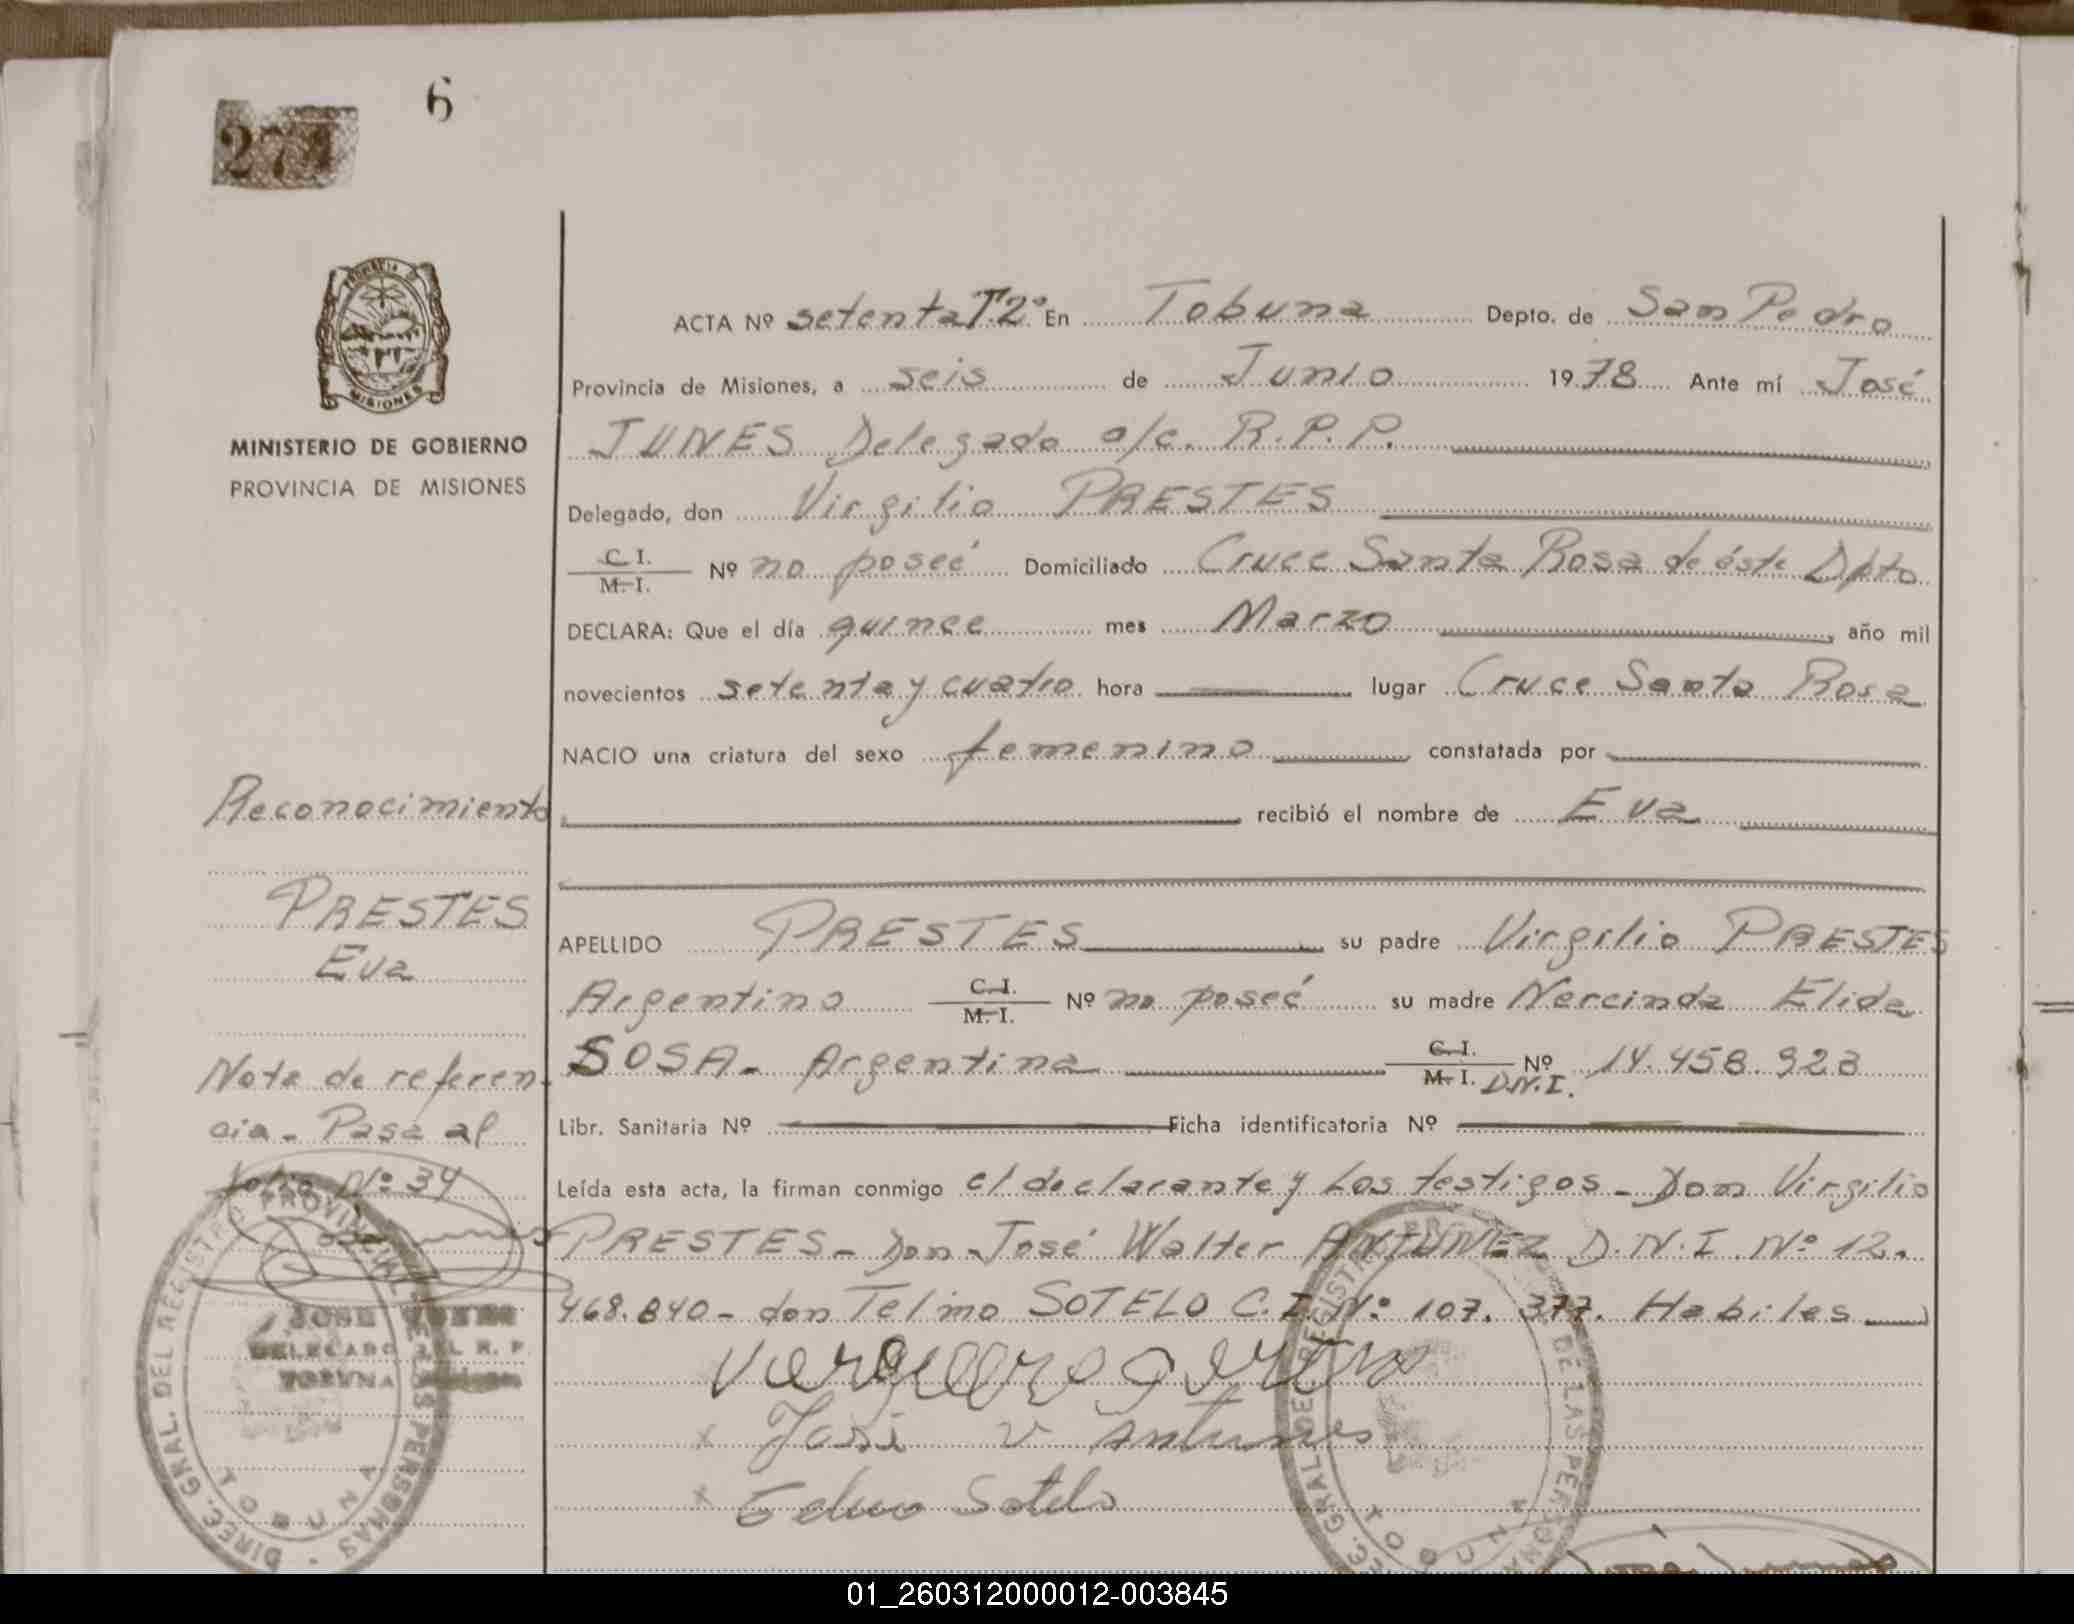 6
271
ACTA Nº setenta T.2º En Tobuna Depto. de San Pedro
Provincia de Misiones, a seis de Junio 1978 Ante mí José
JUNES Delegado a/c. R.P.P.
MINISTERIO DE GOBIERNO
PROVINCIA DE MISIONES
Delegado, don Virgilio PRESTES
C. I.
M. I.
Nº no poseé Domiciliado Cruce Santa Rosa de éste Dpto
DECLARA: Que el día quince mes Marzo año mil
novecientos setenta y cuatro hora lugar Cruce Santa Rosa
NACIO una criatura del sexo femenino constatada por
Reconocimiento
recibió el nombre de Eva
PRESTES
Eva
APELLIDO PRESTES su padre Virgilio PRESTES
Argentino C. I. M. I. Nº no poseé su madre Nercinda Elida
SOSA - Argentina C. I. M. I. D.N.I. Nº 14.458.923
Nota de referen-
cia - Pasa al
folio Nº 34
Libr. Sanitaria Nº Ficha identificatoria Nº
Leída esta acta, la firman conmigo el declarante y los testigos - Don Virgilio
PRESTES - Don José Walter ANTUNEZ D.N.I. Nº 12.
468.840 - don Telmo SOTELO C.I. Nº 107.377. Habiles
JOSE JUNES
DELEGADO DEL R. P.
TOBUNA
José v Antunes
Telmo Sotelo
DIREC. GRAL. DEL REGISTRO PROVINCIAL DE LAS PERSONAS
TOBUNA
DIREC. GRAL. DEL REGISTRO PROVINCIAL DE LAS PERSONAS
TOBUNA
01_260312000012-003845